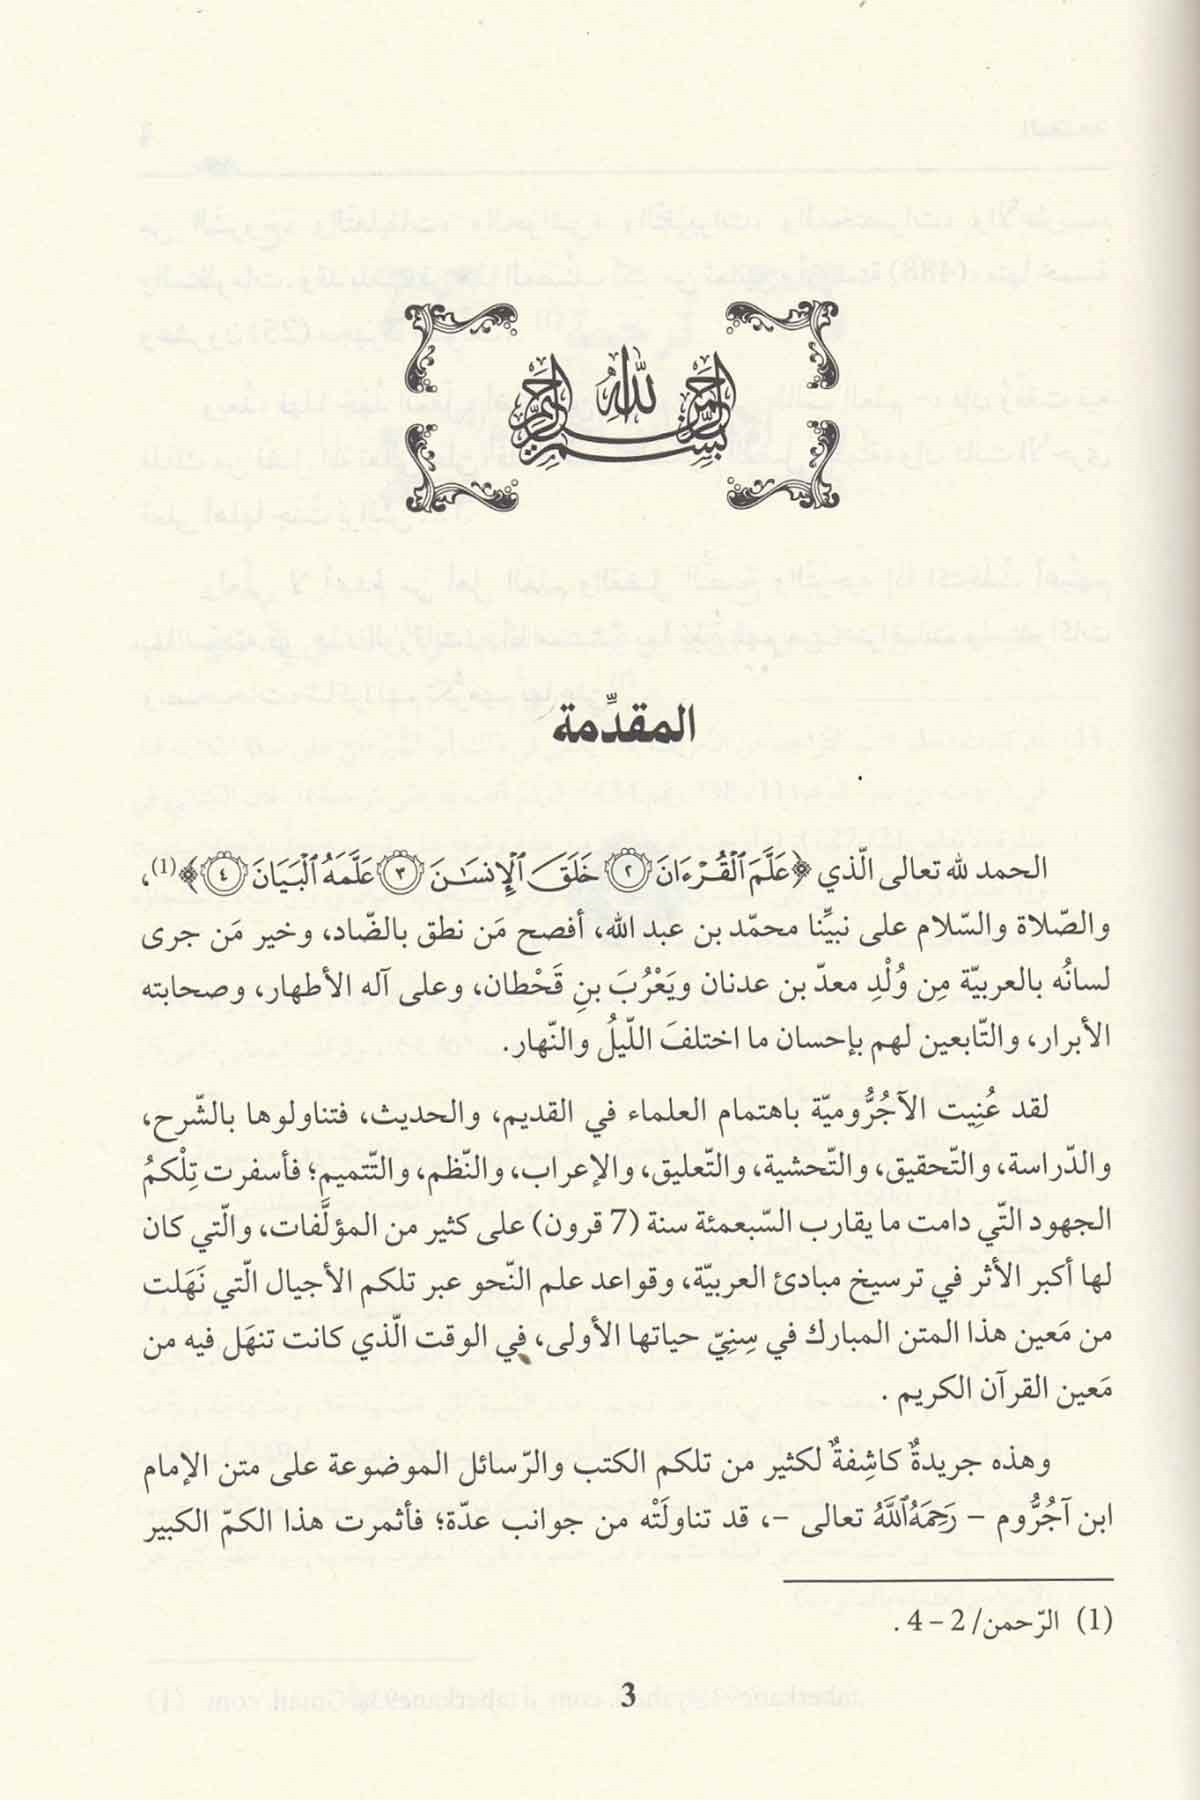 بسم الله الرحمن الرحيم
المقدِّمة
الحمد لله تعالى الّذي ﴿عَلَّمَ ٱلۡقُرۡءَانَ ٢ خَلَقَ ٱلۡإِنسَٰنَ ٣ عَلَّمَهُ ٱلۡبَيَانَ ٤﴾(1)،
والصّلاة والسّلام على نبيِّنا محمّد بن عبد الله، أفصح مَن نطق بالضّاد، وخير مَن جرى
لسانُه بالعربيّة مِن وُلْدِ معدّ بن عدنان ويَعْرُبَ بنِ قَحْطان، وعلى آله الأطهار، وصحابته
الأبرار، والتّابعين لهم بإحسان ما اختلفَ اللّيلُ والنّهار.
لقد عُنِيت الآجُرُّوميّة باهتمام العلماء في القديم، والحديث، فتناولوها بالشّرح،
والدّراسة، والتّحقيق، والتّحشية، والتّعليق، والإعراب، والنّظم، والتّتميم؛ فأسفرت تِلْكمُ
الجهود التّي دامت ما يقارب السّبعمئة سنة (7 قرون) على كثير من المؤلَّفات، والّتي كان
لها أكبر الأثر في ترسيخ مبادئ العربيّة، وقواعد علم النّحو عبر تلكم الأجيال الّتي نَهَلت
من مَعين هذا المتن المبارك في سِنِيّ حياتها الأولى، في الوقت الّذي كانت تنهَل فيه من
مَعين القرآن الكريم .
وهذه جريدةٌ كاشِفةٌ لكثير من تلكم الكتب والرّسائل الموضوعة على متن الإمام
ابن آجُرُّوم – رَحِمَهُ ٱللَّهُ تعالى –، قد تناولَتْه من جوانب عدّة؛ فأثمرت هذا الكمّ الكبير
(1) الرّحمن/ 2 – 4 .
3